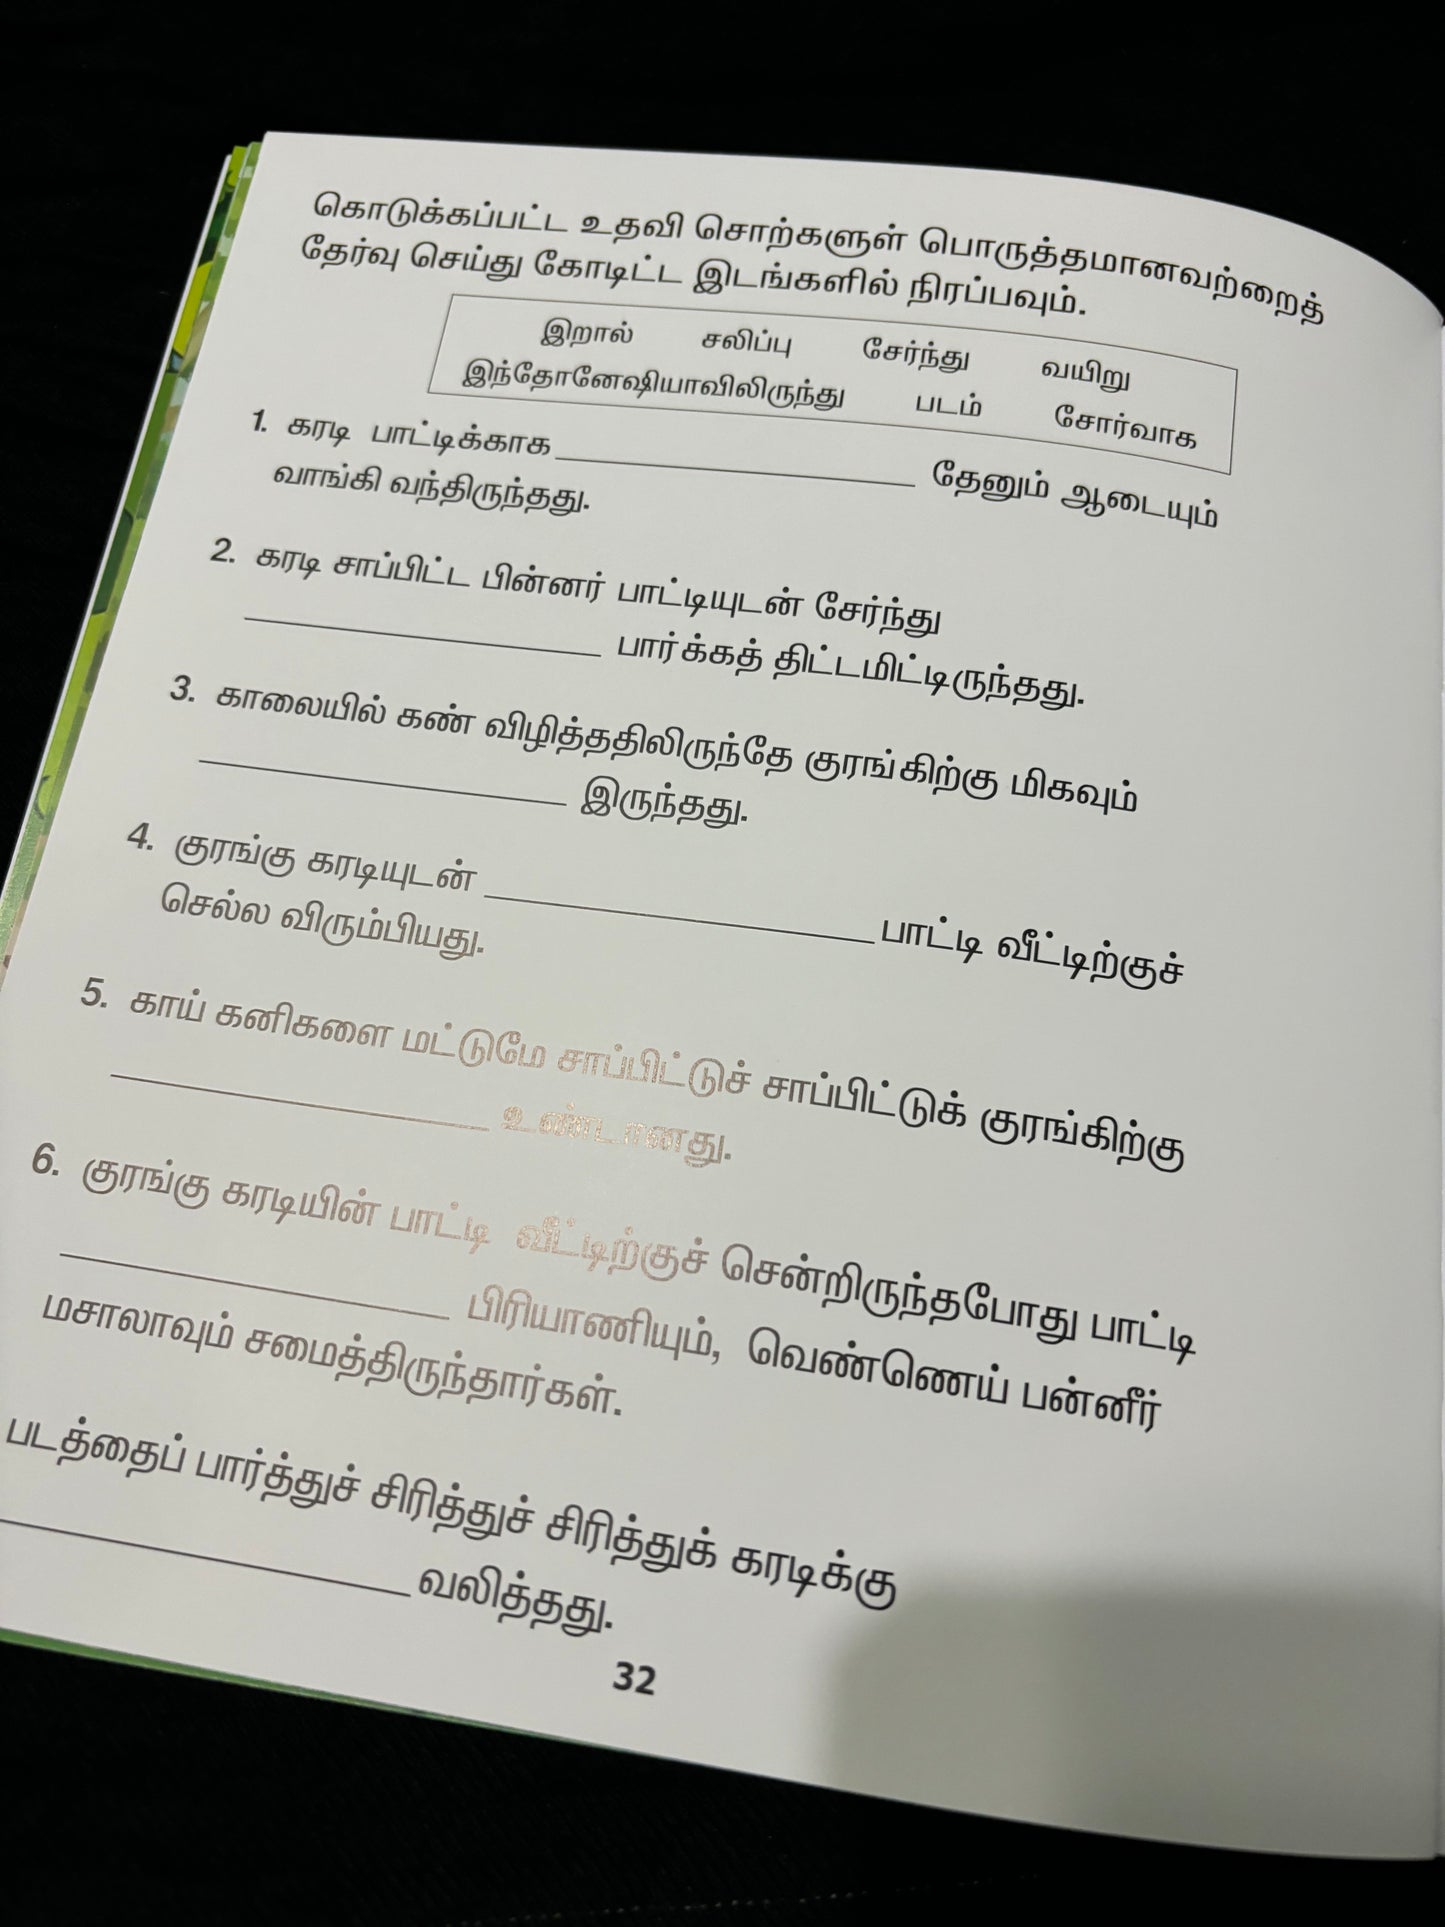 கொடுக்கப்பட்ட உதவி சொற்களுள் பொருத்தமானவற்றைத்
தேர்வு செய்து கோடிட்ட இடங்களில் நிரப்பவும்.
இறால் சலிப்பு சேர்ந்து வயிறு
இந்தோனேஷியாவிலிருந்து படம் சோர்வாக
1. கரடி பாட்டிக்காக ____________ தேனும் ஆடையும்
வாங்கி வந்திருந்தது.
2. கரடி சாப்பிட்ட பின்னர் பாட்டியுடன் சேர்ந்து
____________ பார்க்கத் திட்டமிட்டிருந்தது.
3. காலையில் கண் விழித்ததிலிருந்தே குரங்கிற்கு மிகவும்
____________ இருந்தது.
4. குரங்கு கரடியுடன் ____________ பாட்டி வீட்டிற்குச்
செல்ல விரும்பியது.
5. காய் கனிகளை மட்டுமே சாப்பிட்டுச் சாப்பிட்டுக் குரங்கிற்கு
____________ உண்டானது.
6. குரங்கு கரடியின் பாட்டி வீட்டிற்குச் சென்றிருந்தபோது பாட்டி
____________ பிரியாணியும், வெண்ணெய் பன்னீர்
மசாலாவும் சமைத்திருந்தார்கள்.
படத்தைப் பார்த்துச் சிரித்துச் சிரித்துக் கரடிக்கு
____________ வலித்தது.
32